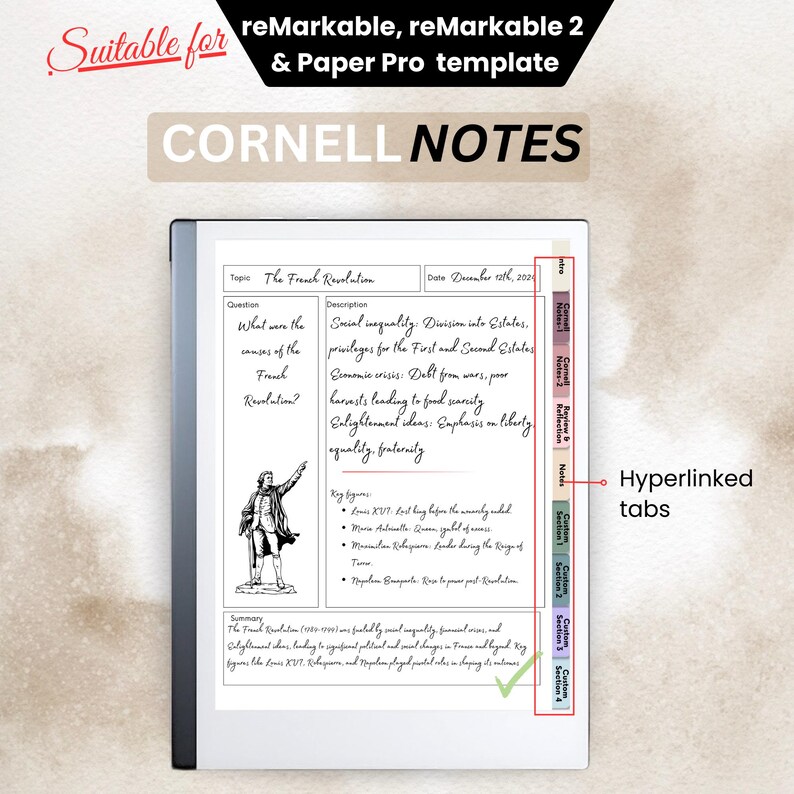 Suitable for
reMarkable, reMarkable 2
& Paper Pro template
CORNELL NOTES
Topic The French Revolution
Date December 12th, 2024
Question
What were the
causes of the
French
Revolution?
Description
Social inequality: Division into Estates,
privileges for the First and Second Estates
Economic crisis: Debt from wars, poor
harvests leading to food scarcity
Enlightenment ideas: Emphasis on liberty,
equality, fraternity
Key figures:
• Louis XVI: Last king before the monarchy ended.
• Marie Antoinette: Queen, symbol of excess.
• Maximilien Robespierre: Leader during the Reign of
Terror.
• Napoleon Bonaparte: Rose to power post-Revolution.
Summary
The French Revolution (1789-1799) was fueled by social inequality, financial crises, and
Enlightenment ideas, leading to significant political and social changes in France and beyond. Key
figures like Louis XVI, Robespierre, and Napoleon played pivotal roles in shaping its outcomes
Intro
Cornell
Notes-1
Cornell
Notes-2
Review &
Reflection
Notes
Custom
Section 1
Custom
Section 2
Custom
Section 3
Custom
Section 4
Hyperlinked
tabs